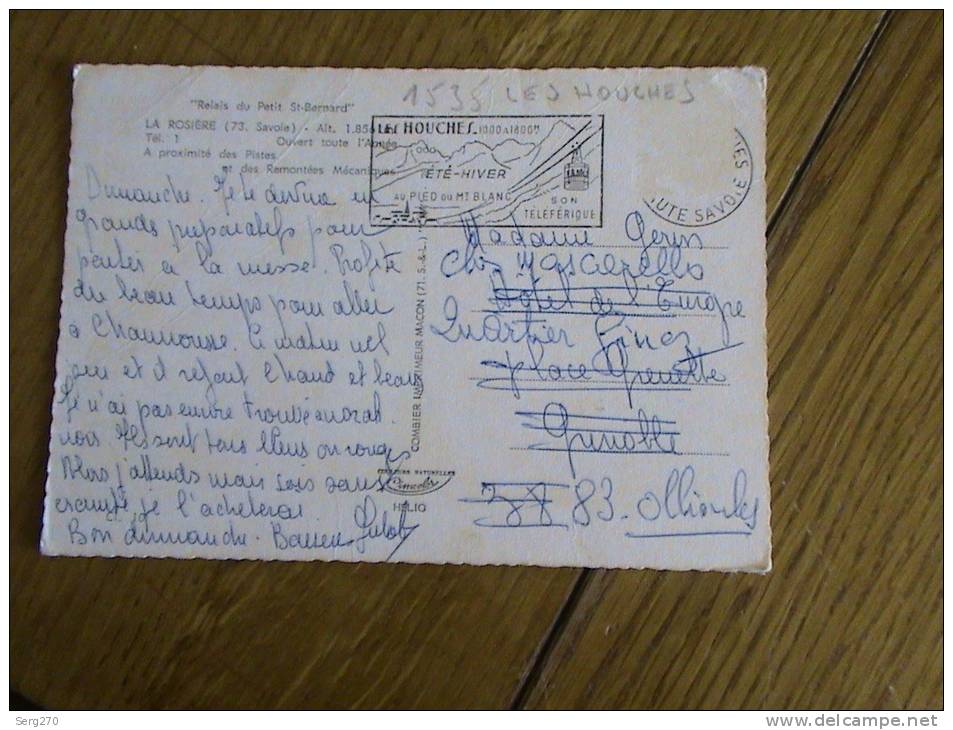 1535 LES HOUCHES
"Relais du Petit St-Bernard"
LA ROSIÈRE (73. Savoie) - Alt. 1.850
Tél. 1 Ouvert toute l'Année
A proximité des Pistes
et des Remontées Mécaniques
LES HOUCHES 1000 A 1800M
ÉTÉ-HIVER
AU PIED DU MT BLANC
SON
TÉLÉFÉRIQUE
HAUTE SAVOIE
Dimanche. Je te devine en
grands préparatifs pour
partir à la messe. Profite
du beau temps pour aller
à Chamrousse. Ce matin
et il refait chaud et beau
Je n'ai pas encore trouvé
noir. Ils sont tous bleus ou rouges
Alors j'attends mais sois sans
crainte, je l'acheterai
Bon dimanche. Baisers
COMBIER IMPRIMEUR MACON (71. S.-&-L.)
COULEURS NATURELLES
HELIO
Madame
Chez
Hôtel de l'Europe
Quartier
Place Grenette
Grenoble
38 83. Ollioules
Serg270
www.delcampe.net